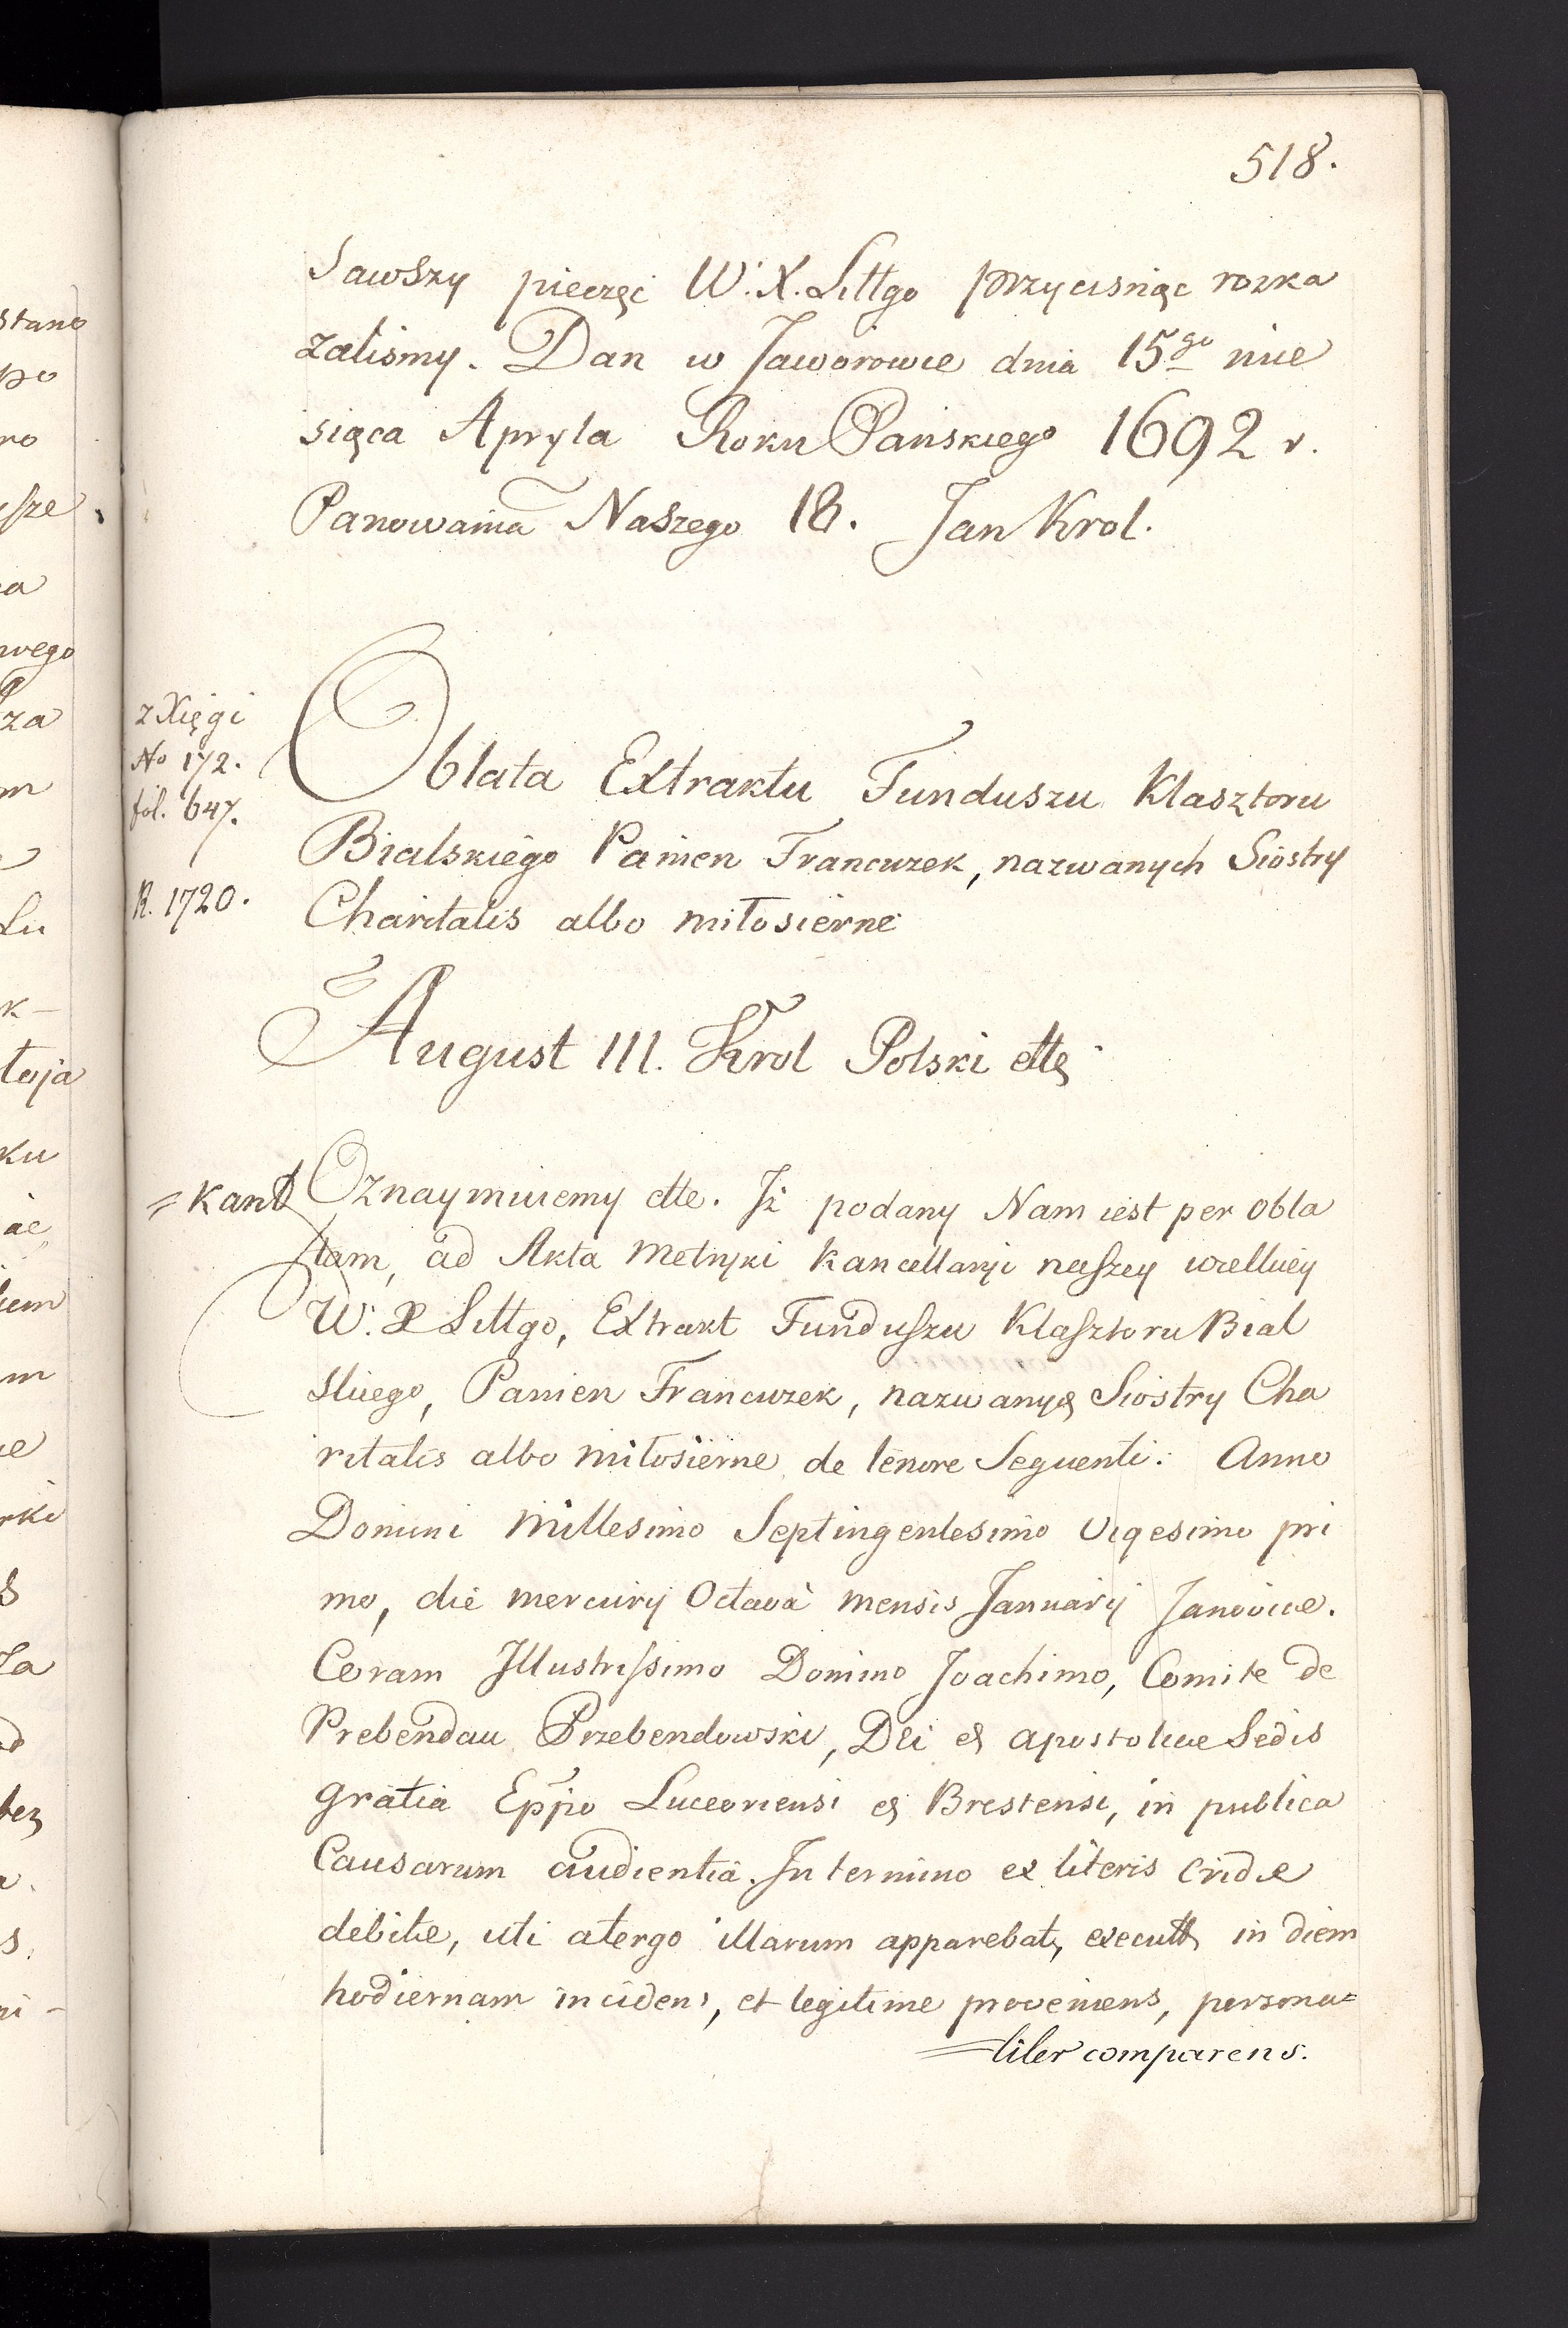 518.
sawszy pieczęć W. X. Littgo przycisnąc rozka
zalismy. Dan w Jaworowie dnia 15go mie
siąca Apryla Roku Pańskiego 1692 r.
Panowania Naszego 18. Jan Krol.
z Xięgi
No 172.
fol. 647.
R. 1720.
Oblata Extraktu Funduszu Klasztoru
Bialskiego Panien Francuzek, nazwanych Siostry
Charitatis albo miłosierne
August III. Krol Polski ettc
=kant
Oznaymuiemy ette. Iż podany Nam iest per obla
tam, ad Akta Metryki Kancellaryi naszey wielkiey
W. X Littgo, Extrakt Funduszu Klasztoru Bial
skiego, Panien Francuzek, nazwanych Siostry Cha
ritatis albo miłosierne de tenore Sequenti: Anno
Domini Millesimo Septingentesimo Vigesimo pri
mo, die mercurij Octava mensis Januarij Janoviae.
Coram Illustrissimo Domino Joachimo, Comite de
Prebendau Przebendowski, Dei et apostolicae Sedis
gratia Eppo Luceoriensi et Brestensi, in publica
Causarum audientia. In termino ex literis cridae
debite, uti atergo illarum apparebat, executis in diem
hodiernam incidens, et legitime proveniens, persona=
=liter comparens.
stano
po
ro
sze
a
wego
za
m
Lu
k-
łoja
ku
ac
iem
m
ie
rki
s
la
d
bez
a.
s.
ni-